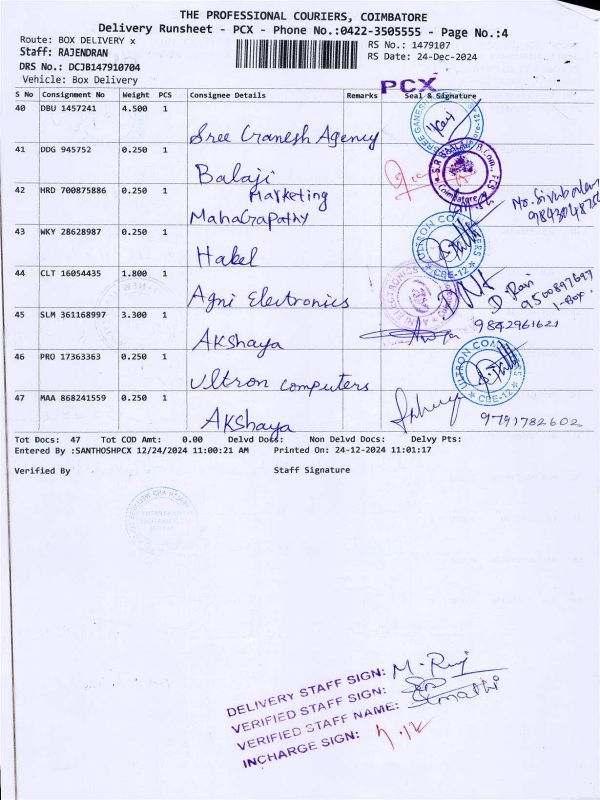 THE PROFESSIONAL COURIERS, COIMBATORE
Delivery Runsheet - PCX - Phone No.:0422-3505555 - Page No.:4
Route: BOX DELIVERY x
RS No.: 1479107
Staff: RAJENDRAN
RS Date: 24-Dec-2024
DRS No.: DCJB147910704
Vehicle: Box Delivery
PCX
S No Consignment No Weight PCS Consignee Details Remarks Seal & Signature
40 DBU 1457241 4.500 1
Sree Ganesh Agency
41 DDG 945752 0.250 1
Balaji
Marketing
42 HRD 700875886 0.250 1
MahaGapathy
43 WKY 28628987 0.250 1
Hakel
ULTRON COMPUTERS
CBE-12
44 CLT 16054435 1.800 1
Agni Electronics
D. Ravi
9500897697
1-Box
45 SLM 361168997 3.300 1
Akshaya
9842961621
46 PRO 17363363 0.250 1
Ultron computers
ULTRON COMPUTERS
CBE-12
47 MAA 868241559 0.250 1
Akshaya
9791782602
Tot Docs: 47 Tot COD Amt: 0.00 Delvd Docs: Non Delvd Docs: Delvy Pts:
Entered By :SANTHOSHPCX 12/24/2024 11:00:21 AM Printed On: 24-12-2024 11:01:17
Verified By Staff Signature
DELIVERY STAFF SIGN: M. Raj
VERIFIED STAFF SIGN:
VERIFIED STAFF NAME:
INCHARGE SIGN: